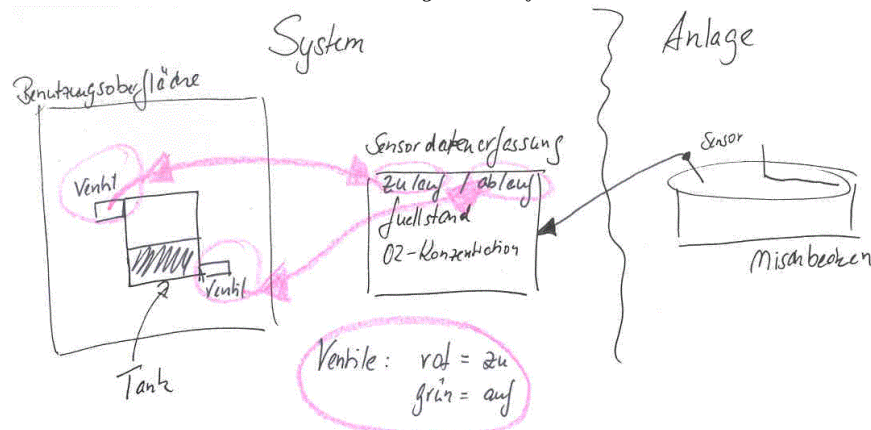 System
Anlage
Benutzungsoberfläche
Ventil
Ventil
Tank
Sensordatenerfassung
zulauf / ablauf
fuellstand
O2-Konzentration
Sensor
Mischbecken
Ventile: rot = zu
grün = auf